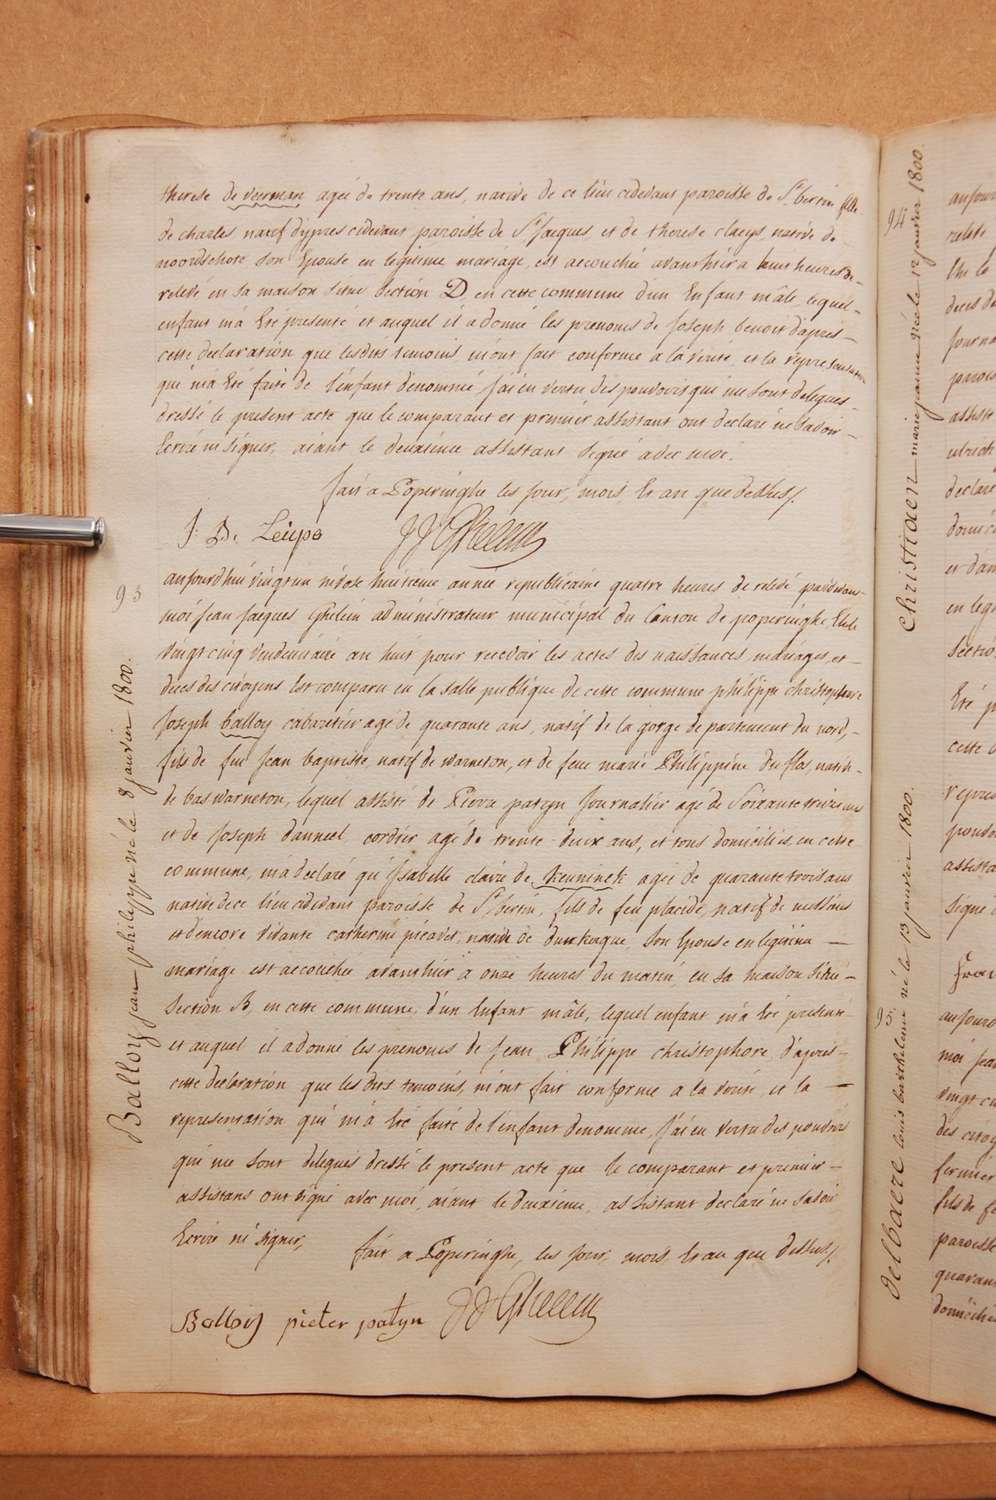 therese de veerman agée de trente ans, native de ce lieu cidevant paroisse de St bertin fille
de charles natif d'ypres cidevant paroisse de St Jacques, et de therese claeys, native de
noordschote son Epouse en legitime mariage, est accouchée avant hier a huit heures de
relevé en sa maison située Section D, en cette commune d'un Enfant mâle, lequel
enfant m'a Eté presenté et auquel il a donné les prenoms de Joseph benoit d'apres
cette declaration que lesdits temoins m'ont fait conforme a la verité, et la representation
qui m'a Eté faite de l'enfant denommé, J'ai en vertu des pouvoirs qui me sont delegués
dressé le present acte que le comparant et premier assistant ont declaré ne savoir
Ecrire ni signer, aiant le deuxieme assistant signé avec moi.
fait a Poperinghe les jour, mois et an que dessus /.
J. De Leupe JJ Ghelein
93
aujourd'hui vingt un nivose huitieme année republicaine quatre heures de relevé pardevant
moi Jean Jacques Ghelein administrateur municipal du Canton de poperinghe, Elu le
vingt cinq vendemiaire an huit pour recevoir les actes des naissances, mariages, et
deces des citoyens Est comparu en la salle publique de cette commune philippe christophore
Joseph balloy cabaretier agé de quarante ans, natif de la gorge departement du nord,
fils de feu Jean baptiste natif de warneton, et de feue marie Philippine du flos, native
de bas warneton, lequel assisté de Pierre patyn Journalier agé de Soixante trois ans
et de Joseph danneel cordier agé de trente deux ans, et tous domiciliés en cette
commune, m'a declaré qu'Isabelle claire de keuninck agée de quarante trois ans
native de ce lieu cidevant paroisse de St bertin, fils de feu placide, natif de messines
et d'encore vivante catherine picadet, native de dunkerque, son Epouse en legitime
mariage est accouchée avant hier à onze heures du matin, en sa maison située
Section B, en cette commune, d'un Enfant mâle, lequel enfant m'a Eté presenté
et auquel il a donné les prenoms de Jean Philippe christophore, d'apres
cette declaration que lesdits temoins, m'ont fait conforme a la verité, et la
representation qui m'a Eté faite de l'enfant denommé, J'ai en vertu des pouvoirs
qui me sont delegués dressé le present acte que le comparant et premier
assistans ont signé avec moi, aiant le deuxieme assistant declaré ne savoir
Ecrire ni signer, fait a Poperinghe, les jour, mois, et an que dessus /.
Balloy pieter patyn JJ Ghelein
Balloy jean philippe né le 8 janvier 1800.
94
christiaen marie jeanne née le 12 janvier 1800.
95
delbaere louis barthelemi né le 13 janvier 1800.